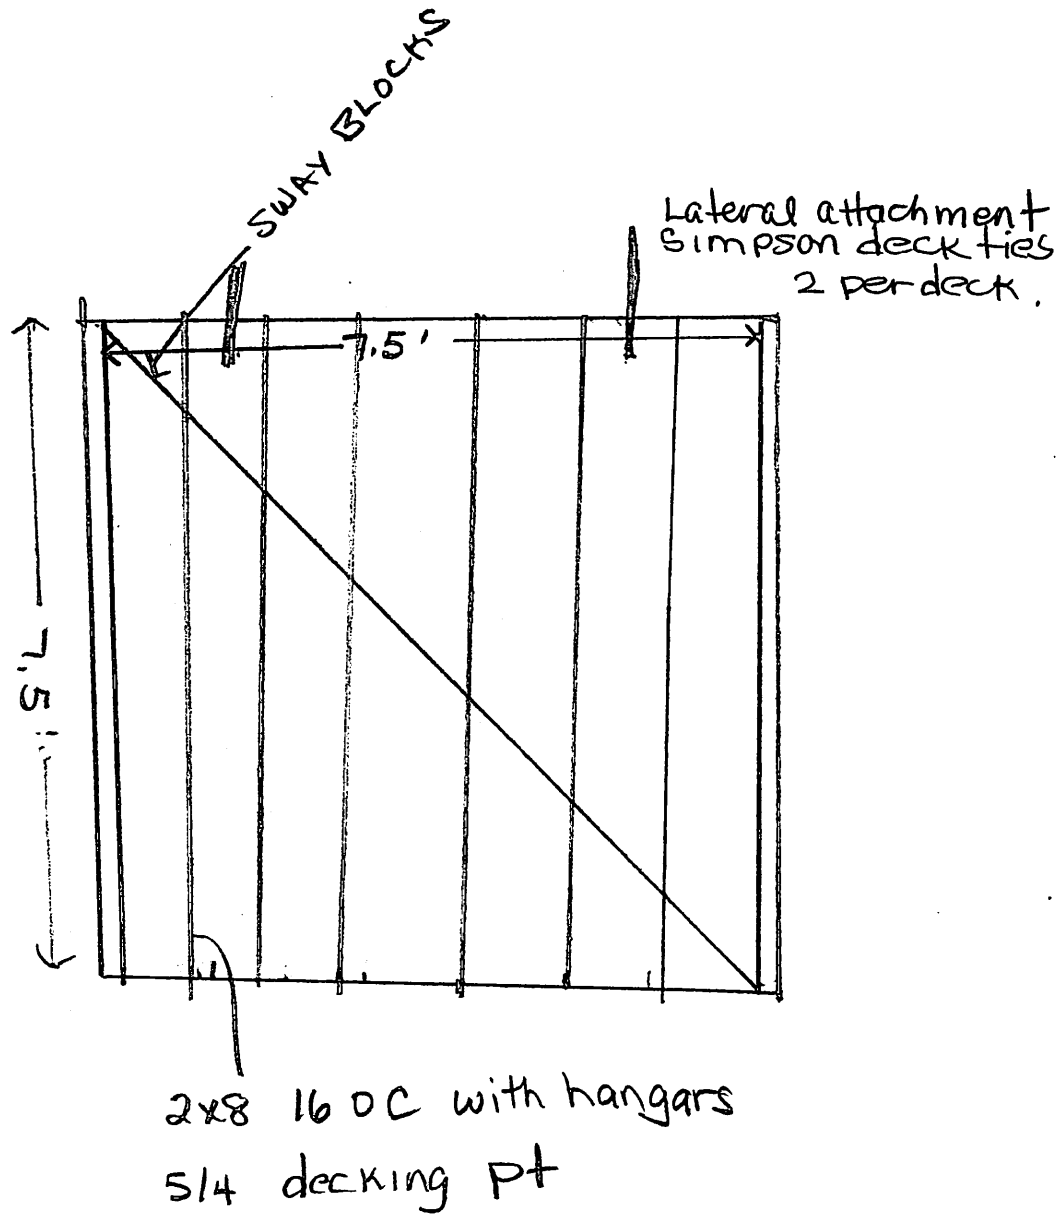 SWAY BLOCKS
Lateral attachment
Simpson deck ties
2 per deck.
7.5'
7.5'
2x8 16 OC with hangars
5/4 decking pt